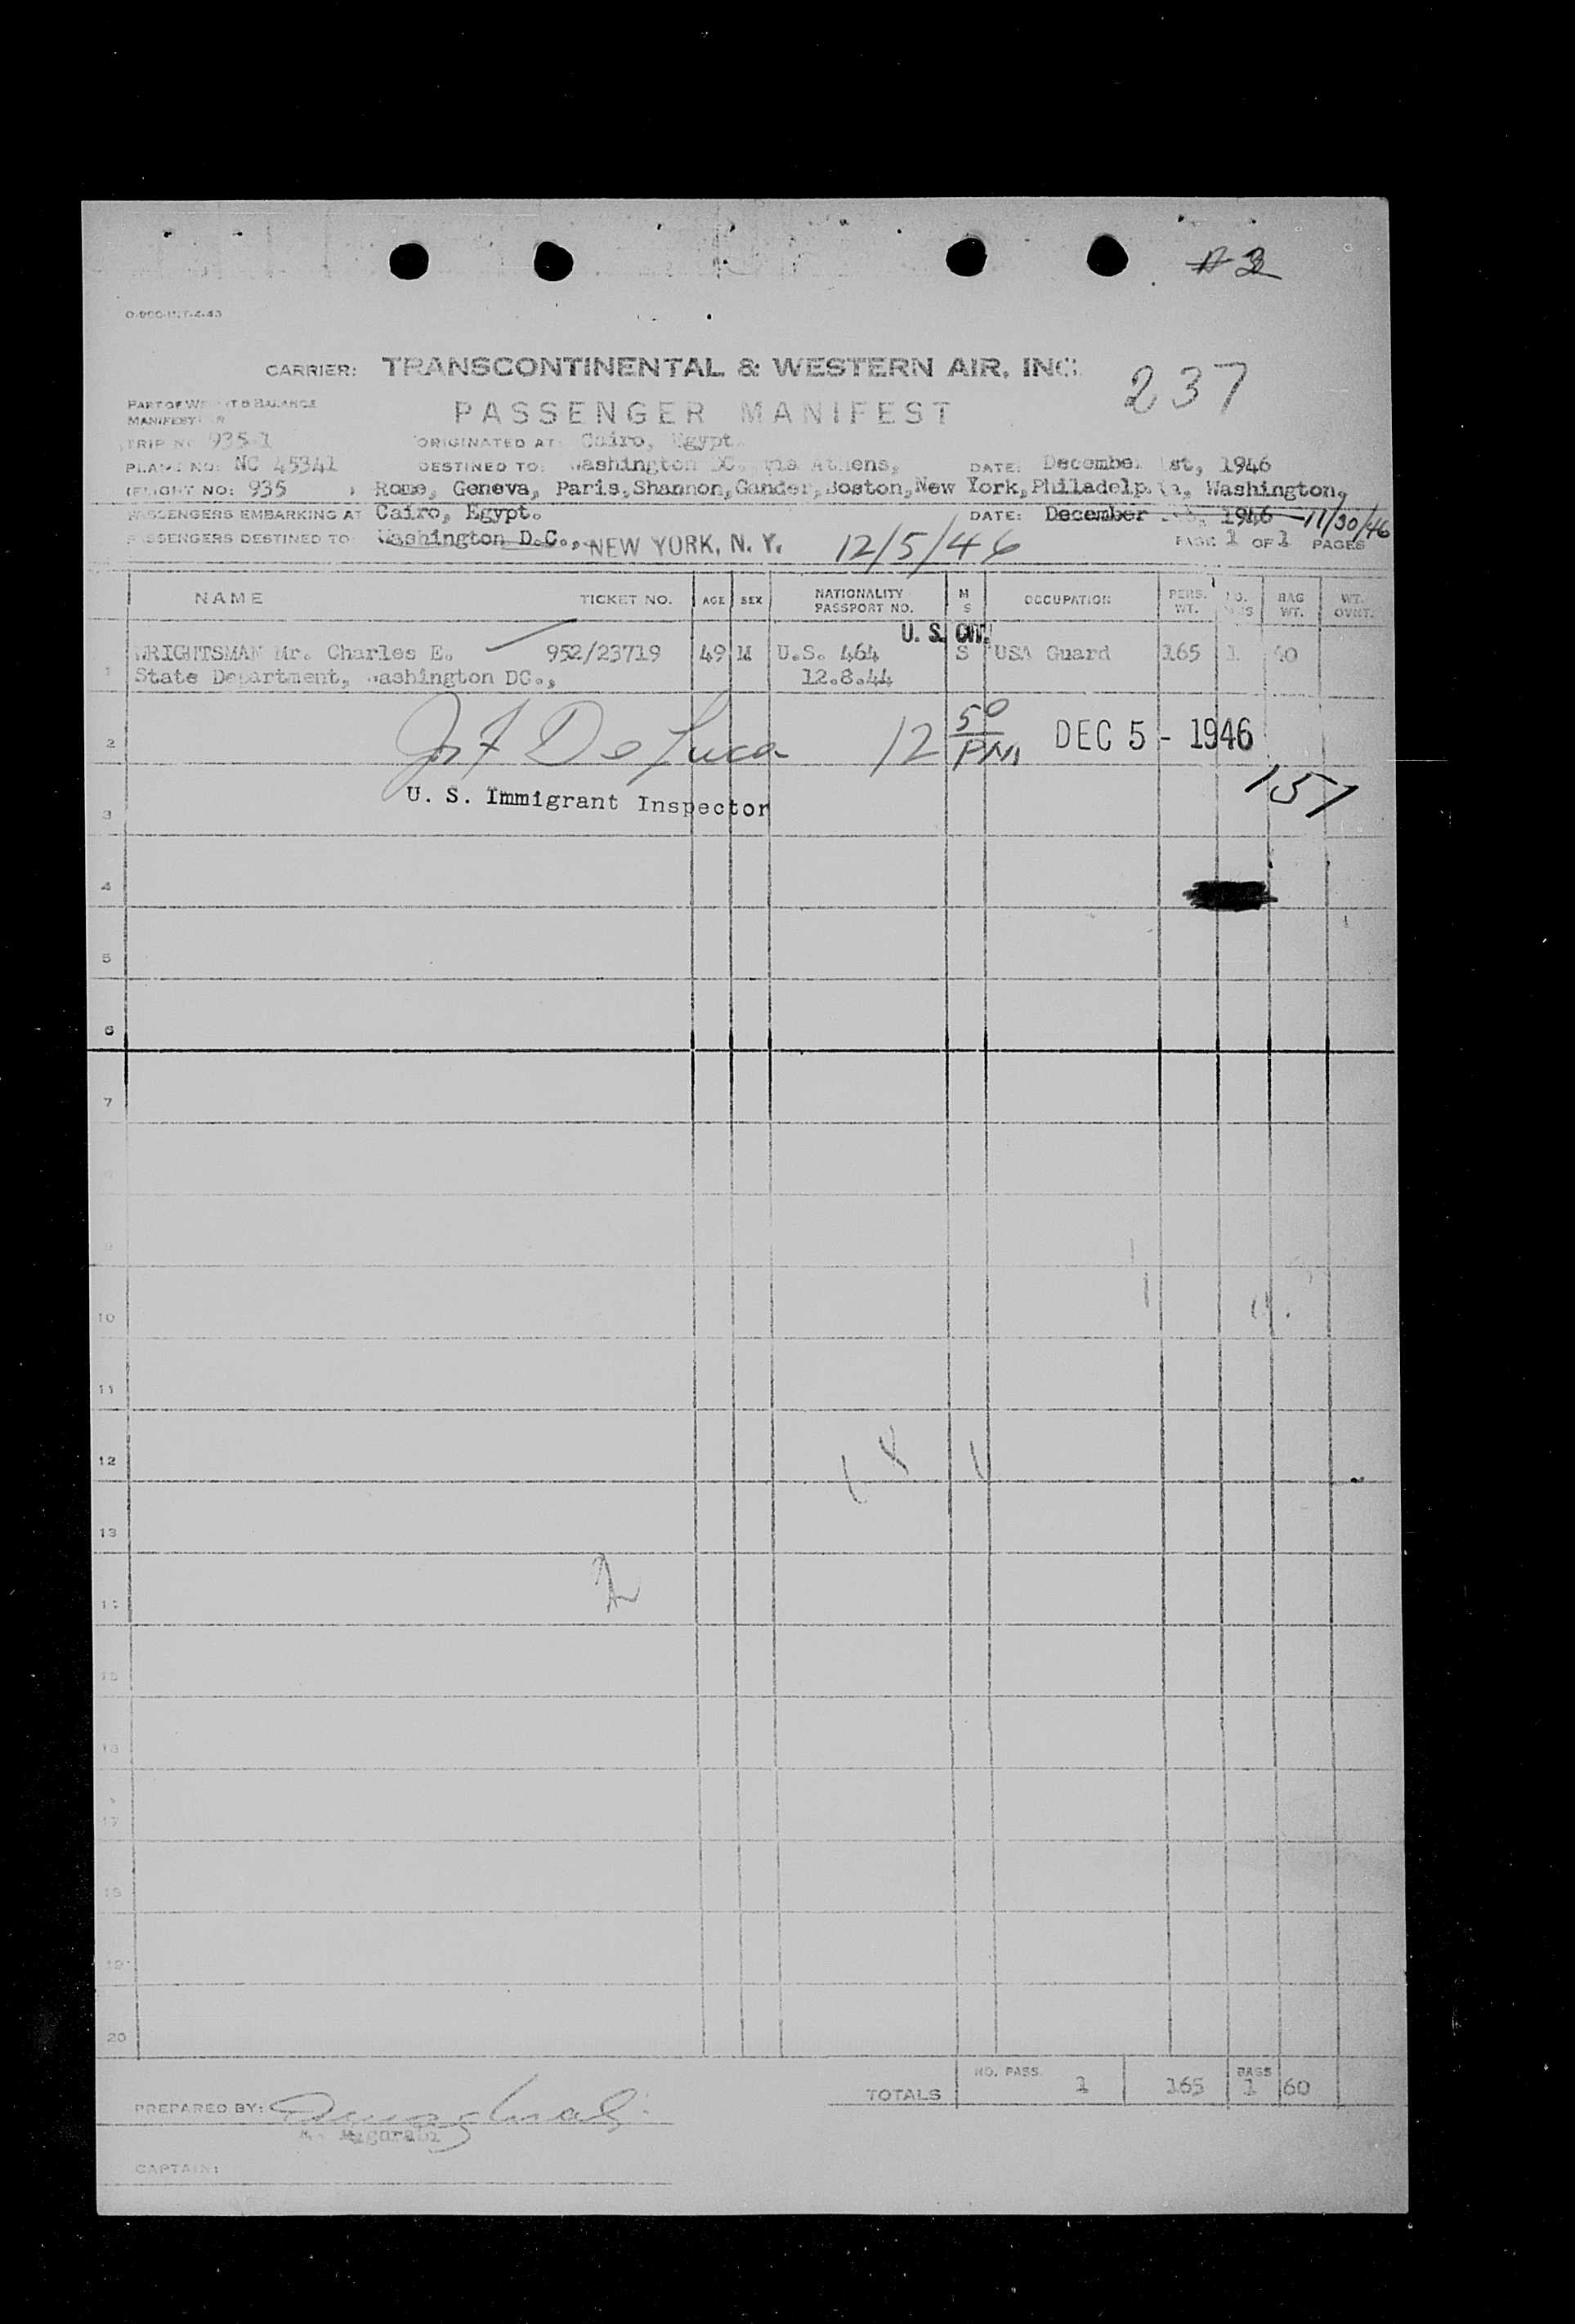 # 3
CARRIER: TRANSCONTINENTAL & WESTERN AIR, INC.
237
PART OF WEIGHT & BALANCE
MANIFEST
PASSENGER MANIFEST
TRIP NO 935-1
ORIGINATED AT: Cairo, Egypt.
PLANE NO: NC 45341
DESTINED TO: Washington DC. via Athens,
DATE: December 1st, 1946
(FLIGHT NO: 935 ) Rome, Geneva, Paris,Shannon,Gander,Boston,New York,Philadelphia, Washington,
PASSENGERS EMBARKING AT Cairo, Egypt.
DATE: December 1946 11/30/46
PASSENGERS DESTINED TO Washington D.C., NEW YORK, N. Y. 12/5/46
PAGE 1 OF 1 PAGES
NAME TICKET NO. AGE SEX NATIONALITY PASSPORT NO. M S OCCUPATION PERS. WT. NO. BAGS BAG WT. WT. OVHT.
U. S. CIT.
1 WRIGHTSMAN Mr. Charles E. 952/23719 49 M U.S. 464 S USA Guard 165 1 60
State Department, Washington DC., 12.8.44
2 Jos F De Luca 12 50 PM DEC 5 - 1946
157
U. S. Immigrant Inspector
3
4
5
6
7
10
11
12
13
2
14
15
16
17
18
19
20
TOTALS NO. PASS. 1 165 BAGS 1 60
PREPARED BY:
CAPTAIN: